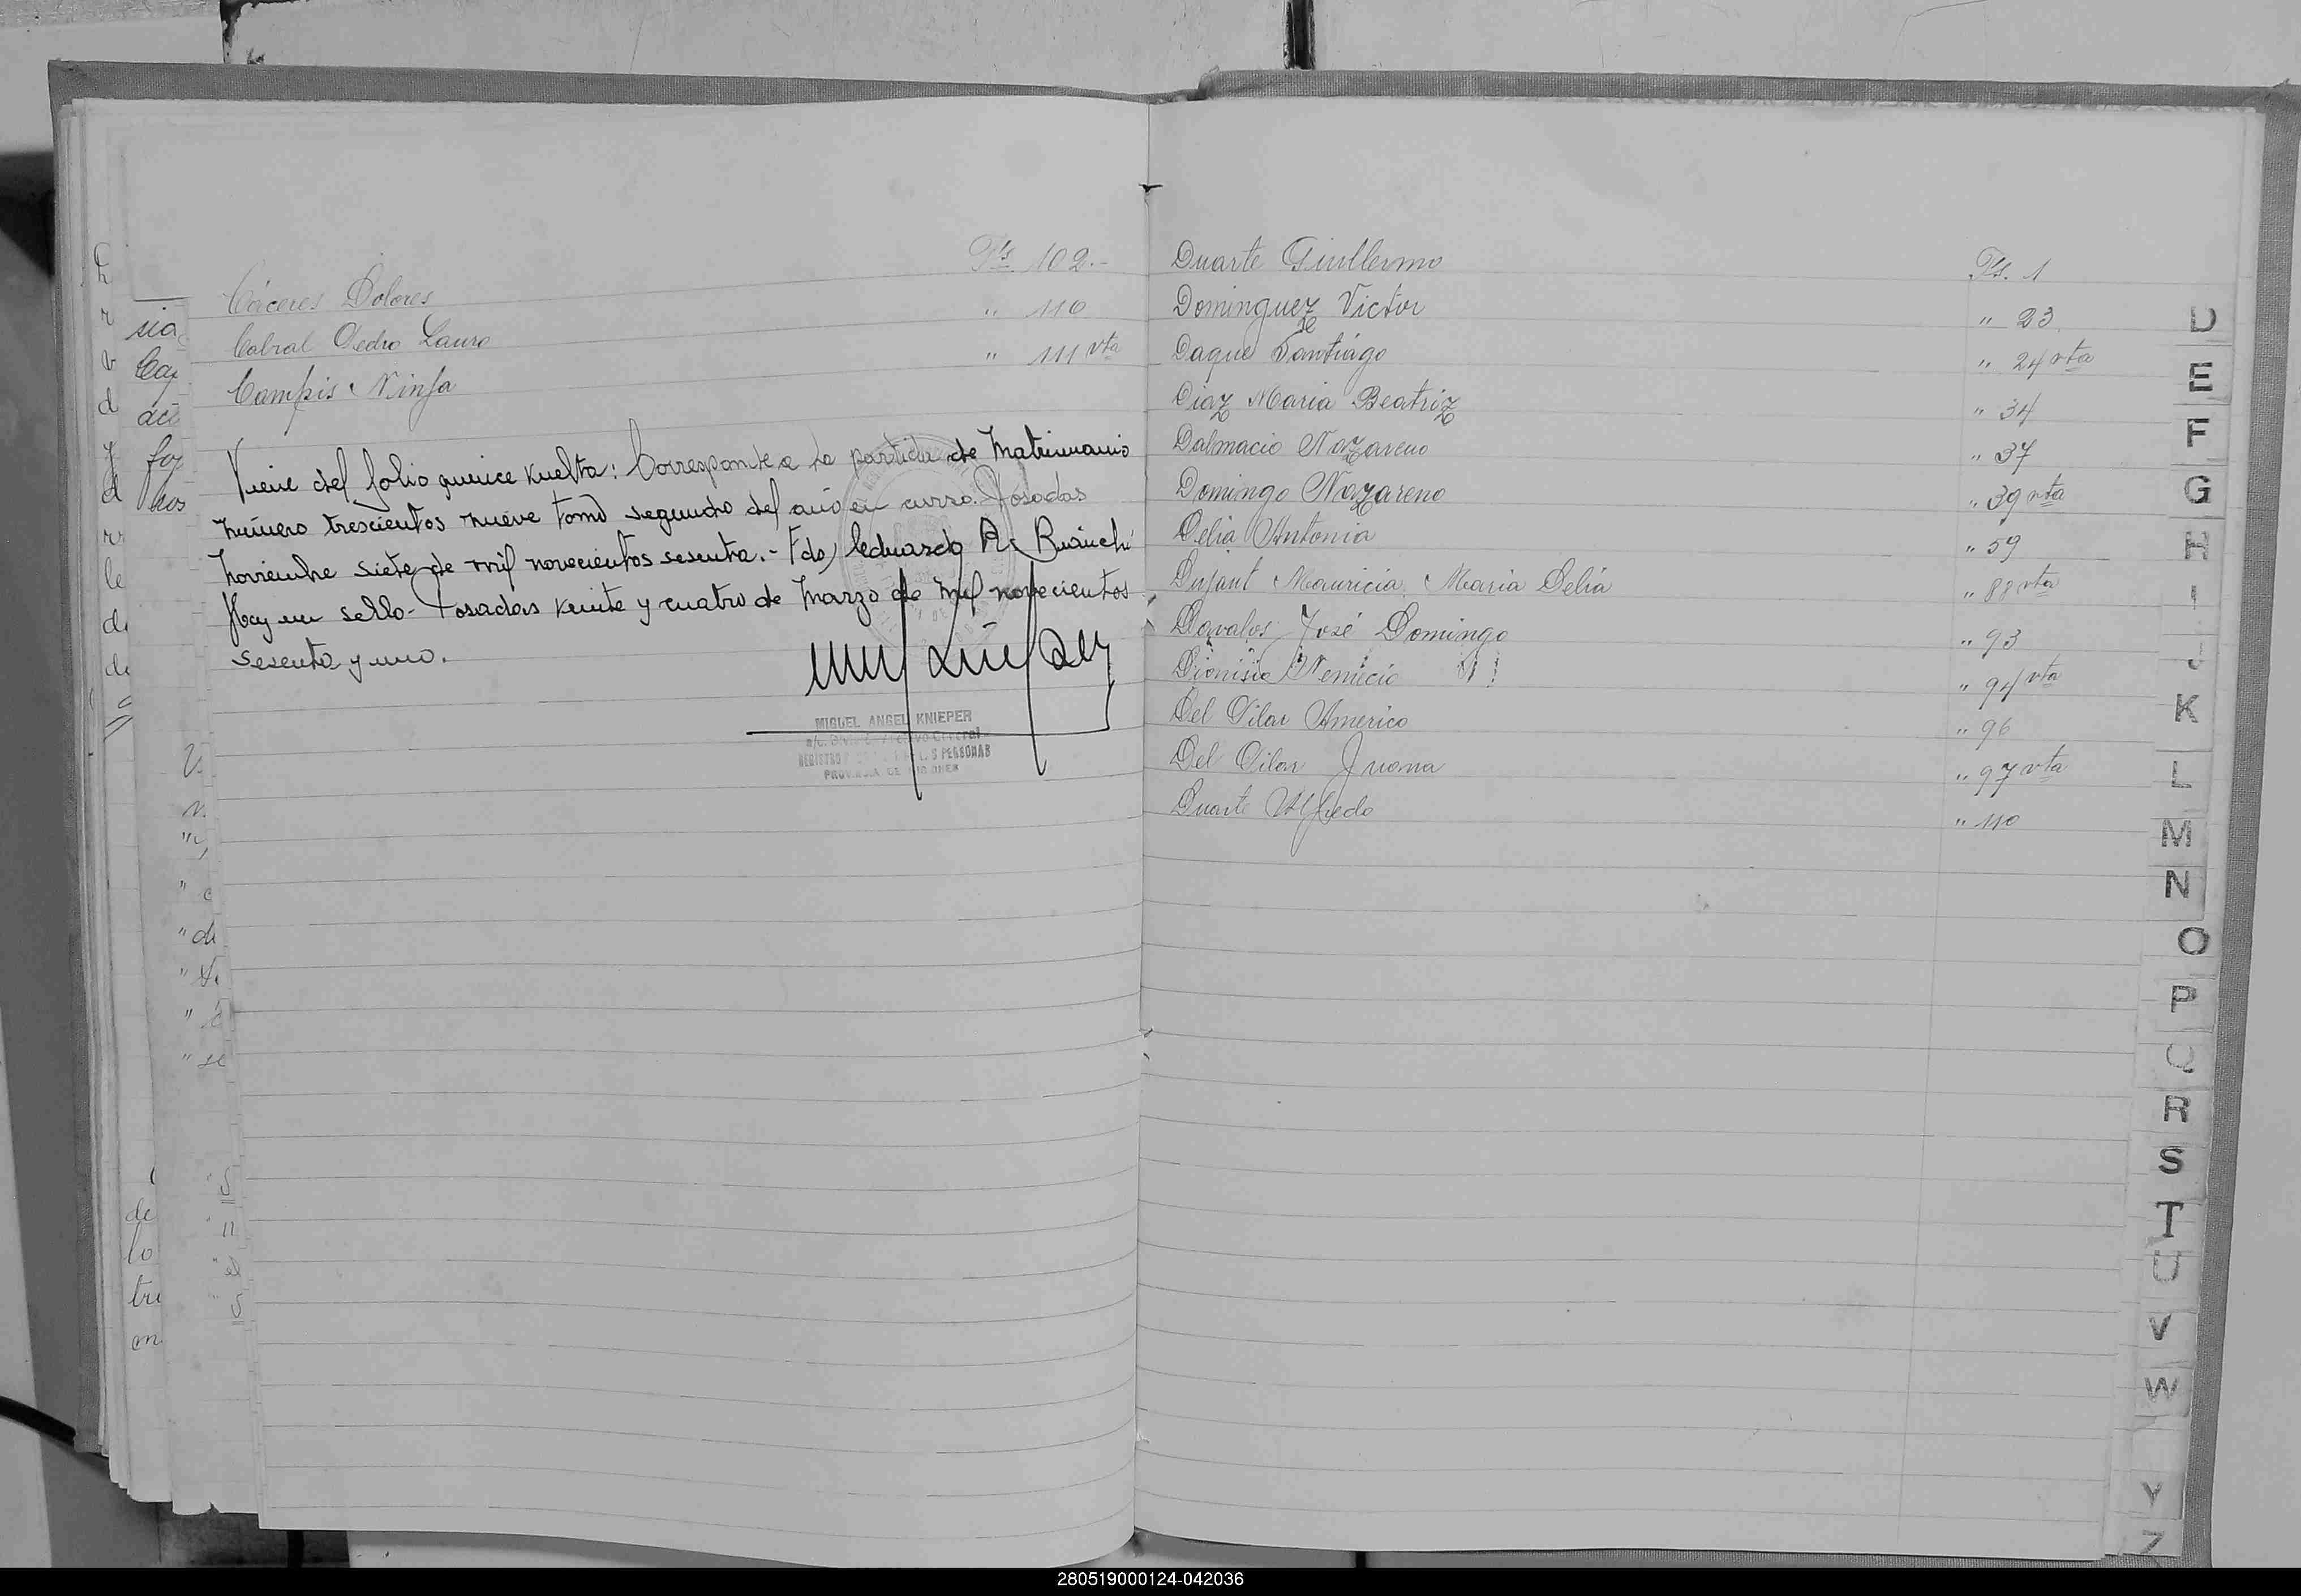 Cáceres Dolores Fs 102.-
Cabral Pedro Lauro " 110
Campis Ninfa " 111 vta
Viene del folio quince vuelta: Corresponde a la partida de Matrimonio
número trescientos nueve tomo segundo del año en curso. Posadas
Noviembre siete de mil novecientos sesenta.- Fdo) Eduardo R. Bianchi
Hay un sello- Posadas veinte y cuatro de Marzo de mil novecientos
sesenta y uno.
MIGUEL ANGEL KNIEPER
PERSONAS
PROVINCIA DE MISIONES
Duarte Guillermo Fs. 1
Dominguez Victor " 23
Daque Santiago " 24 vta
de
Diaz Maria Beatriz " 34
Dalmacio Nazareno " 37
Domingo Nazareno " 39 vta
Delia Antonia " 59
Dujaut Mauricia, Maria Delia " 88 vta
Davalos José Domingo " 93
Dionisio Nemecio " 94 vta
Del Pilar Americo " 96
Del Pilar Juana " 97 vta
Duarte Alfredo " 110
D
E
F
G
H
I
J
K
L
M
N
O
P
Q
R
S
T
U
V
W
Y
Z
280519000124-042036